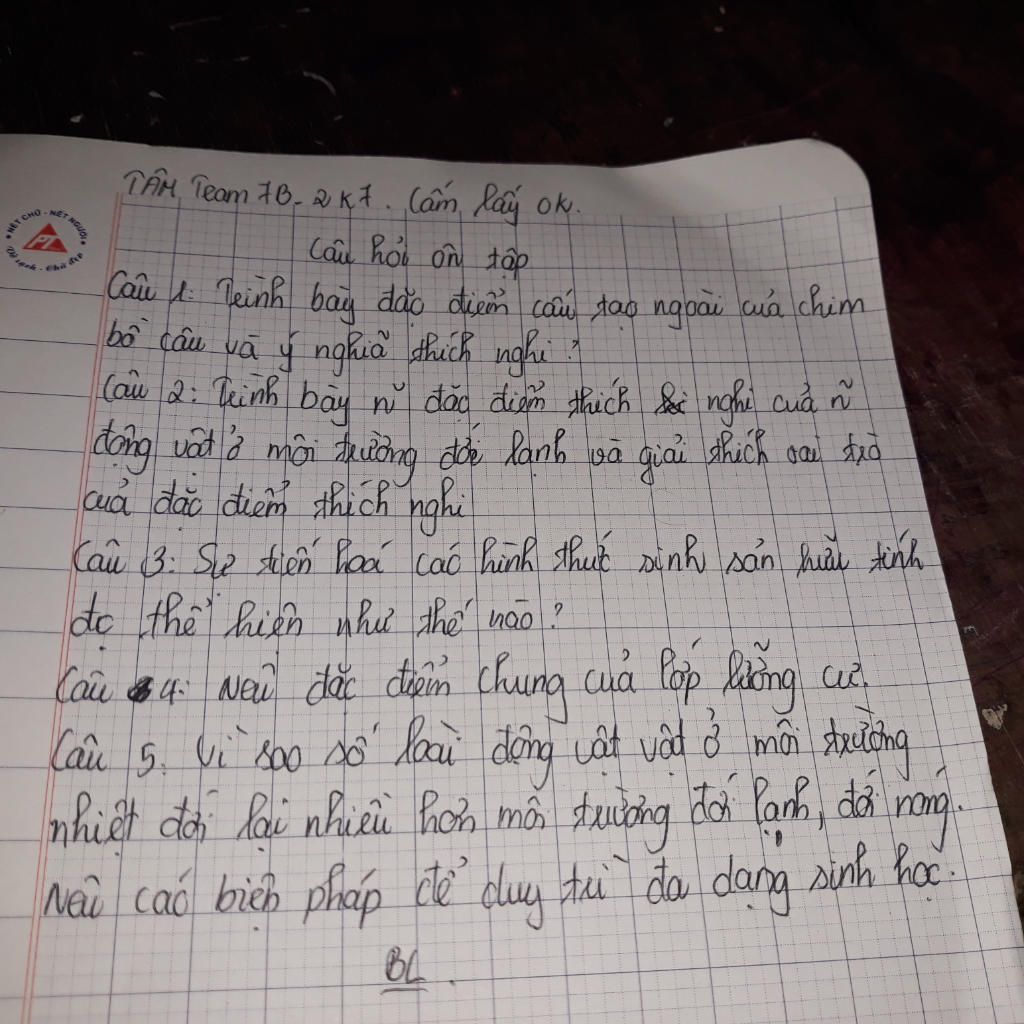 TÂM Team 7B - 2K7. Cấm lấy ok.
NÉT CHỮ - NẾT NGƯỜI
PT
Vở sạch - Chữ đẹp
Câu hỏi ôn tập
Câu 1: Trình bày đặc điểm cấu tạo ngoài của chim
bồ câu và ý nghĩa thích nghi?
Câu 2: Trình bày ñ đặc điểm thích nghi của ñ
động vật ở môi trường đới lạnh và giải thích vai trò
của đặc điểm thích nghi
Câu 3: Sự tiến hoá các hình thức sinh sản hữu tính
đc thể hiện như thế nào?
Câu 4: Nêu đặc điểm chung của lớp lưỡng cư.
Câu 5. Vì sao số loài động vật vật ở môi trường
nhiệt đới lại nhiều hơn môi trường đới lạnh, đới nóng.
Nêu các biện pháp để duy trì đa dạng sinh học.
BL.